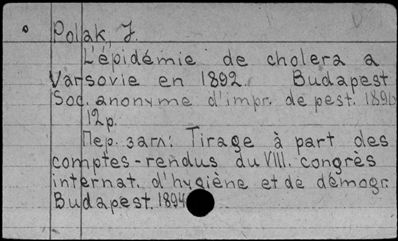 Polak, J.
L'épidémie de cholera a
Varsovie en 1892. Budapest
Soc. anonyme d'impr. de pest. 1894
12p.
Пер. загл: Tirage à part des
comptes-rendus du VIII. congrès
internat. d'hygiène et de démogr.
Budapest. 1894